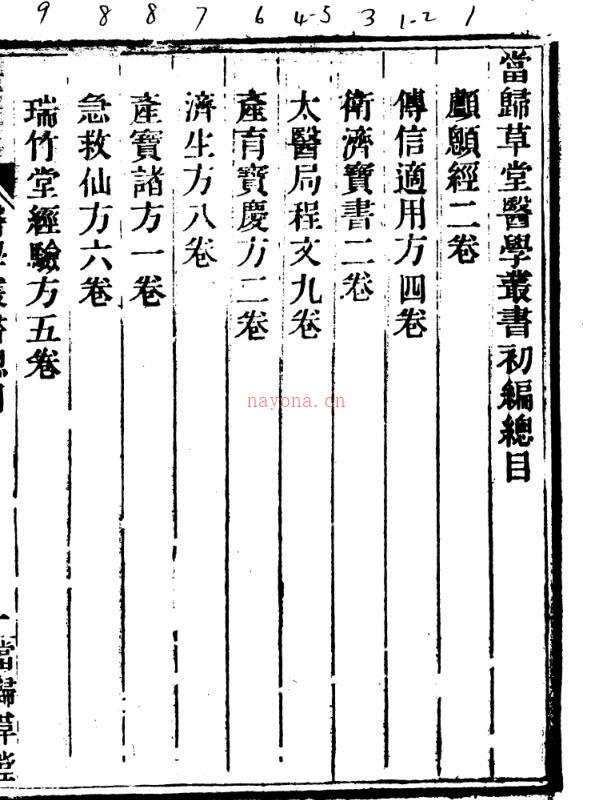 9 8 8 7 6 4-5 3 1-2 1
當歸草堂醫學叢書初編總目
顱顖經二卷
傳信適用方四卷
衛濟寶書二卷
太醫局程文九卷
產育寶慶方二卷
濟生方八卷
產寶諸方一卷
急救仙方六卷
瑞竹堂經驗方五卷
一 當歸草堂
nayona.cn